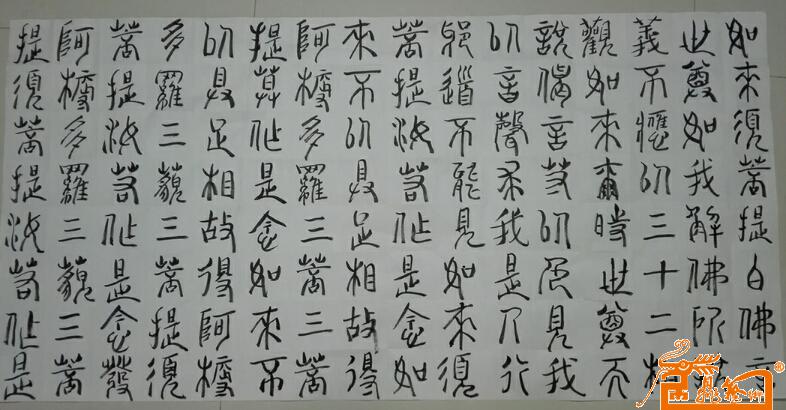 如來須菩提白佛言
世尊如我解佛所
義不應以三十二相
觀如來爾時世尊而
說偈言若以色見我
以音聲求我是人行
邪道不能見如來須
菩提汝若作是念如
來不以具足相故得
阿耨多羅三菩三菩
提莫作是念如來不
以具足相故得阿耨
多羅三藐三菩提須
菩提汝若作是念發
阿耨多羅三藐三菩
提須菩提汝若作是